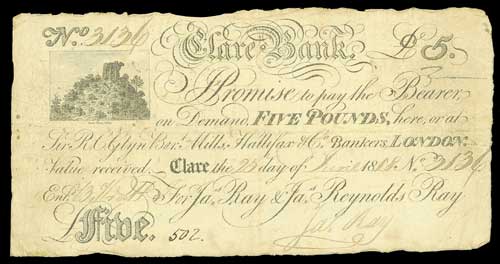 No. 3136 Clare Bank. £5.
I Promise to pay the Bearer,
on Demand, FIVE POUNDS, here, or at
Sir R. C. Glyn Bart. Mills, Hallifax & Co. Bankers, LONDON.
Value received. Clare, the 25 day of No. 3136
Entd. For Jas. Ray & Jas. Reynolds Ray
£Five. 502. Jas. Ray